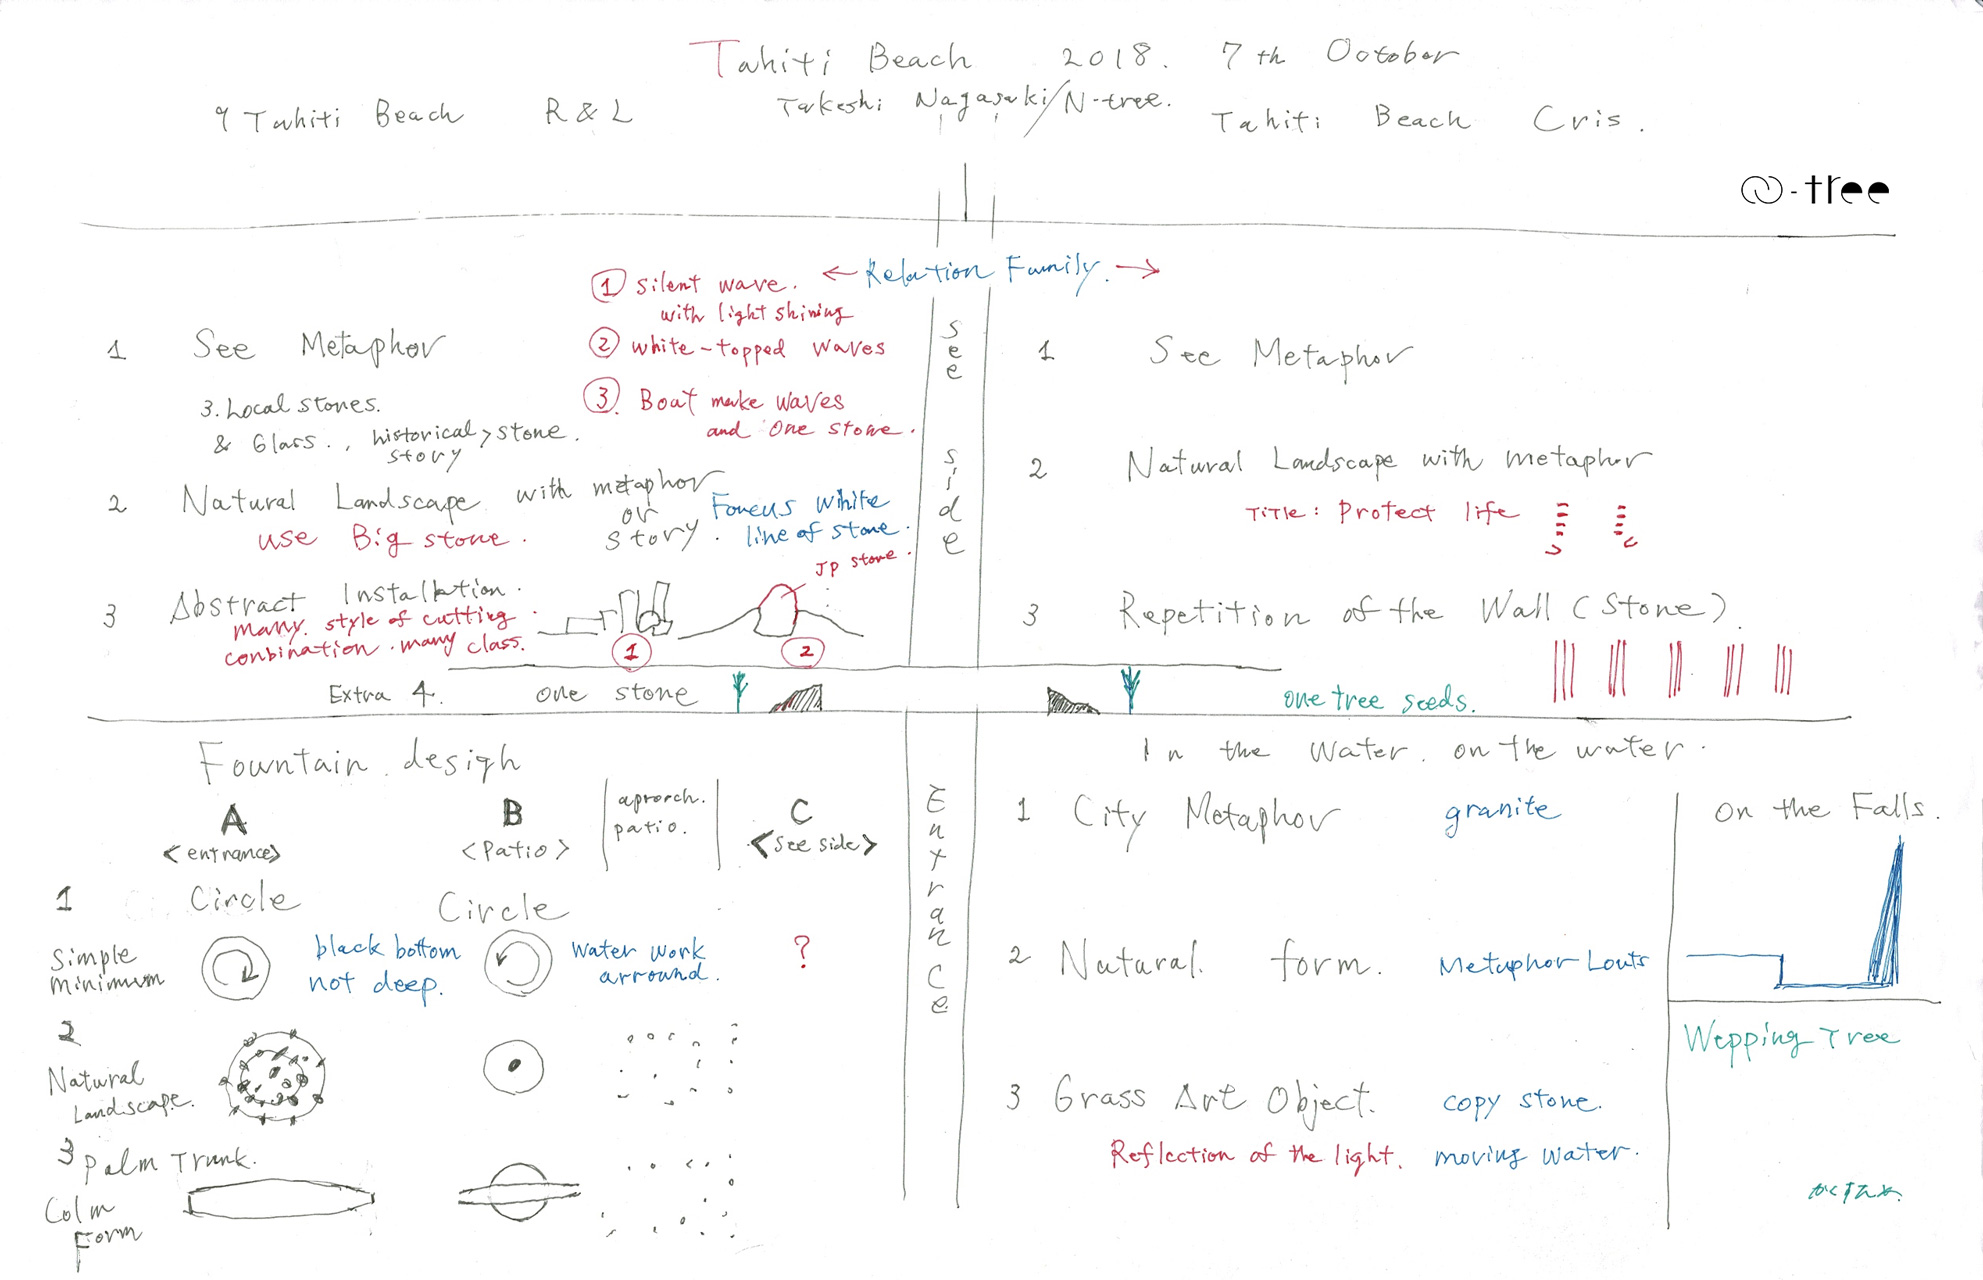 Tahiti Beach 2018. 7th October
9 Tahiti Beach R & L
Takeshi Nagasaki/N-tree.
Tahiti Beach Cris.
N-tree
← Relation Family. →
1 See Metaphor
① Silent wave.
with light shining
② White-topped waves
③ Boat make waves
and one stone.
3. Local stones.
& Glass.. historical > stone.
story
2 Natural Landscape with metaphor
or
story.
use Big stone.
Foucus White
line of stone.
JP stone.
3 Abstract Installation.
many. style of cutting.
conbination. many class.
1
2
Extra 4. one stone
See side
1 See Metaphor
2 Natural Landscape with metaphor
TiTLe: Protect life
3 Repetition of the Wall (Stone).
one tree seeds.
Fountain. desigh
A
<entrance>
B
<Patio>
aproach.
patio.
C
<See side>
1 Circle Circle
Simple
minimum
black bottom
not deep.
Water work
arround.
?
2
Natural
Landscape.
3 Palm Trunk.
Colm
Form
Entrance
In the Water. on the water.
1 City Metaphor granite
2 Natural. form. Metaphor Louts
3 Grass Art Object. copy stone.
Reflection of the light. moving water.
on the Falls.
Wepping Tree